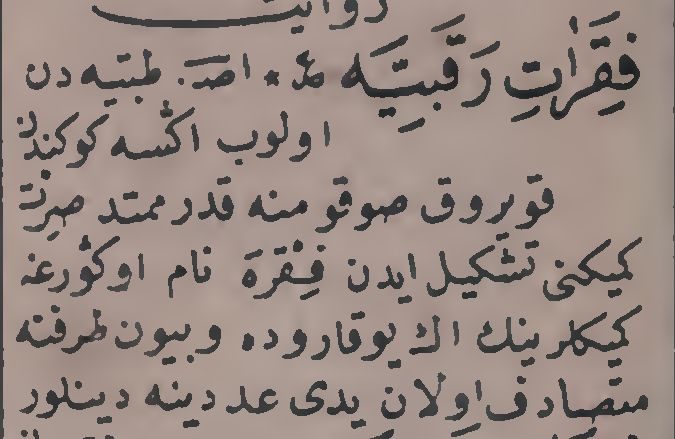 فِقَرَاتِ رَقَبِيَّه اصـ. طبيه دن
اولوب اڭسه كوكندن
قويروق صوقومنه قدر ممتد صِرت
كميكنى تشكيل ايدن فِقْرَه نام اوكورغه
كميكلرينك اڭ يوقاروده وبيون طرفنه
متصادف اولان يدى عددينه دينلور